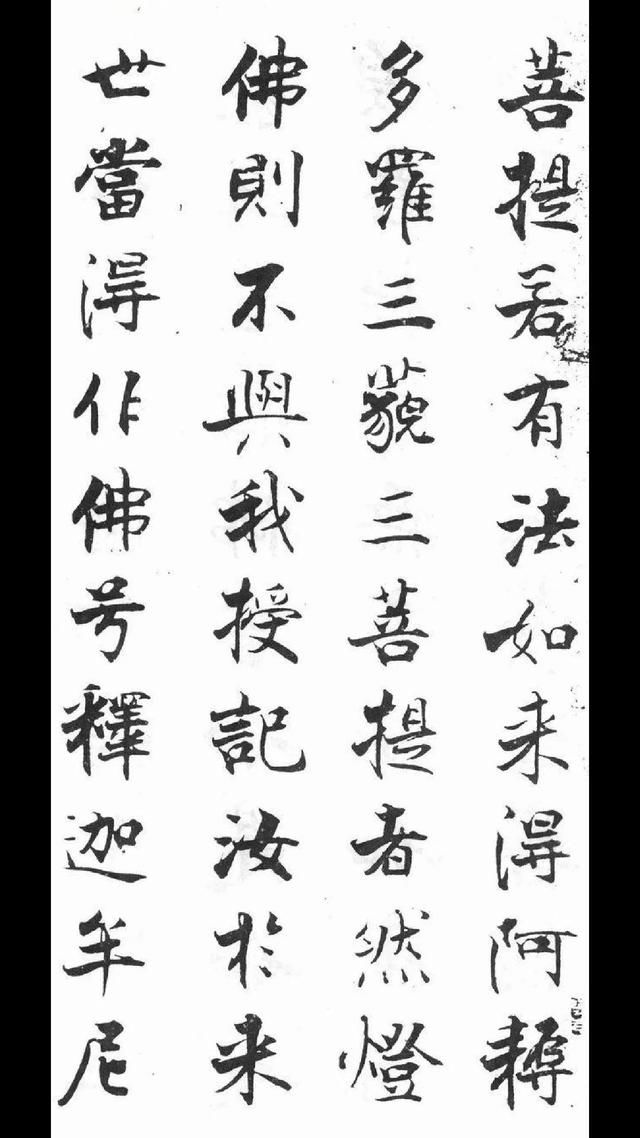 菩提若有法如来得阿耨
多羅三藐三菩提者然燈
佛則不與我授記汝於来
世當得作佛号釋迦牟尼